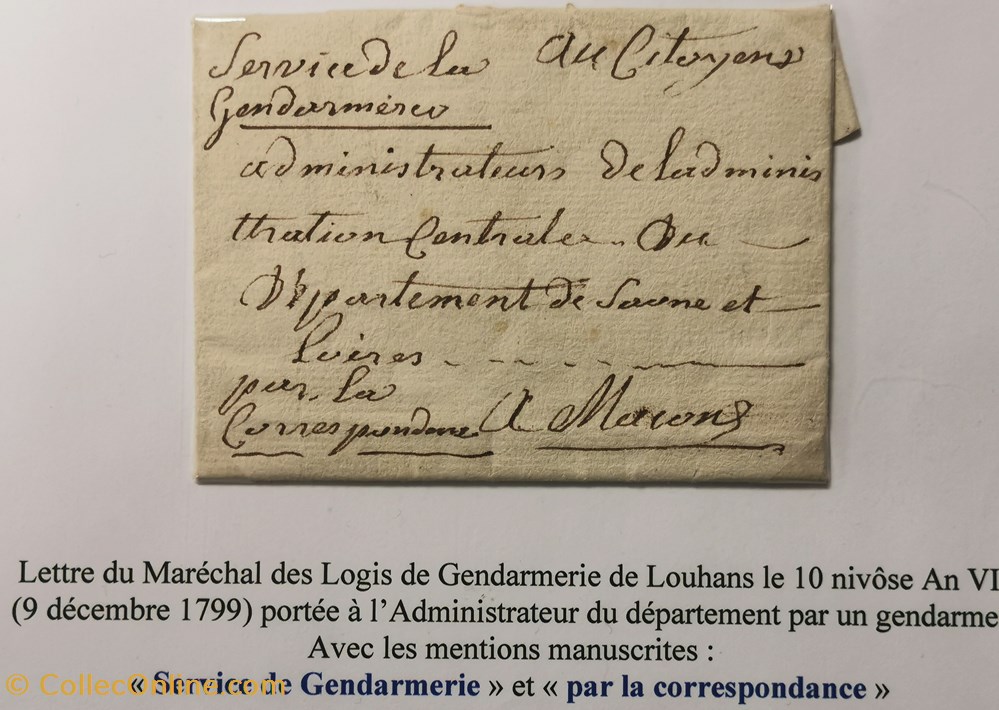 Service de la
Gendarmerie
Au Citoyens
administrateurs De ladminis
ttration Centrale Du
Département de Saone et
Loires
par la
Correspondance
A Macon
Lettre du Maréchal des Logis de Gendarmerie de Louhans le 10 nivôse An VI
(9 décembre 1799) portée à l’Administrateur du département par un gendarme
Avec les mentions manuscrites :
« Service de Gendarmerie » et « par la correspondance »
© CollecOnline.com